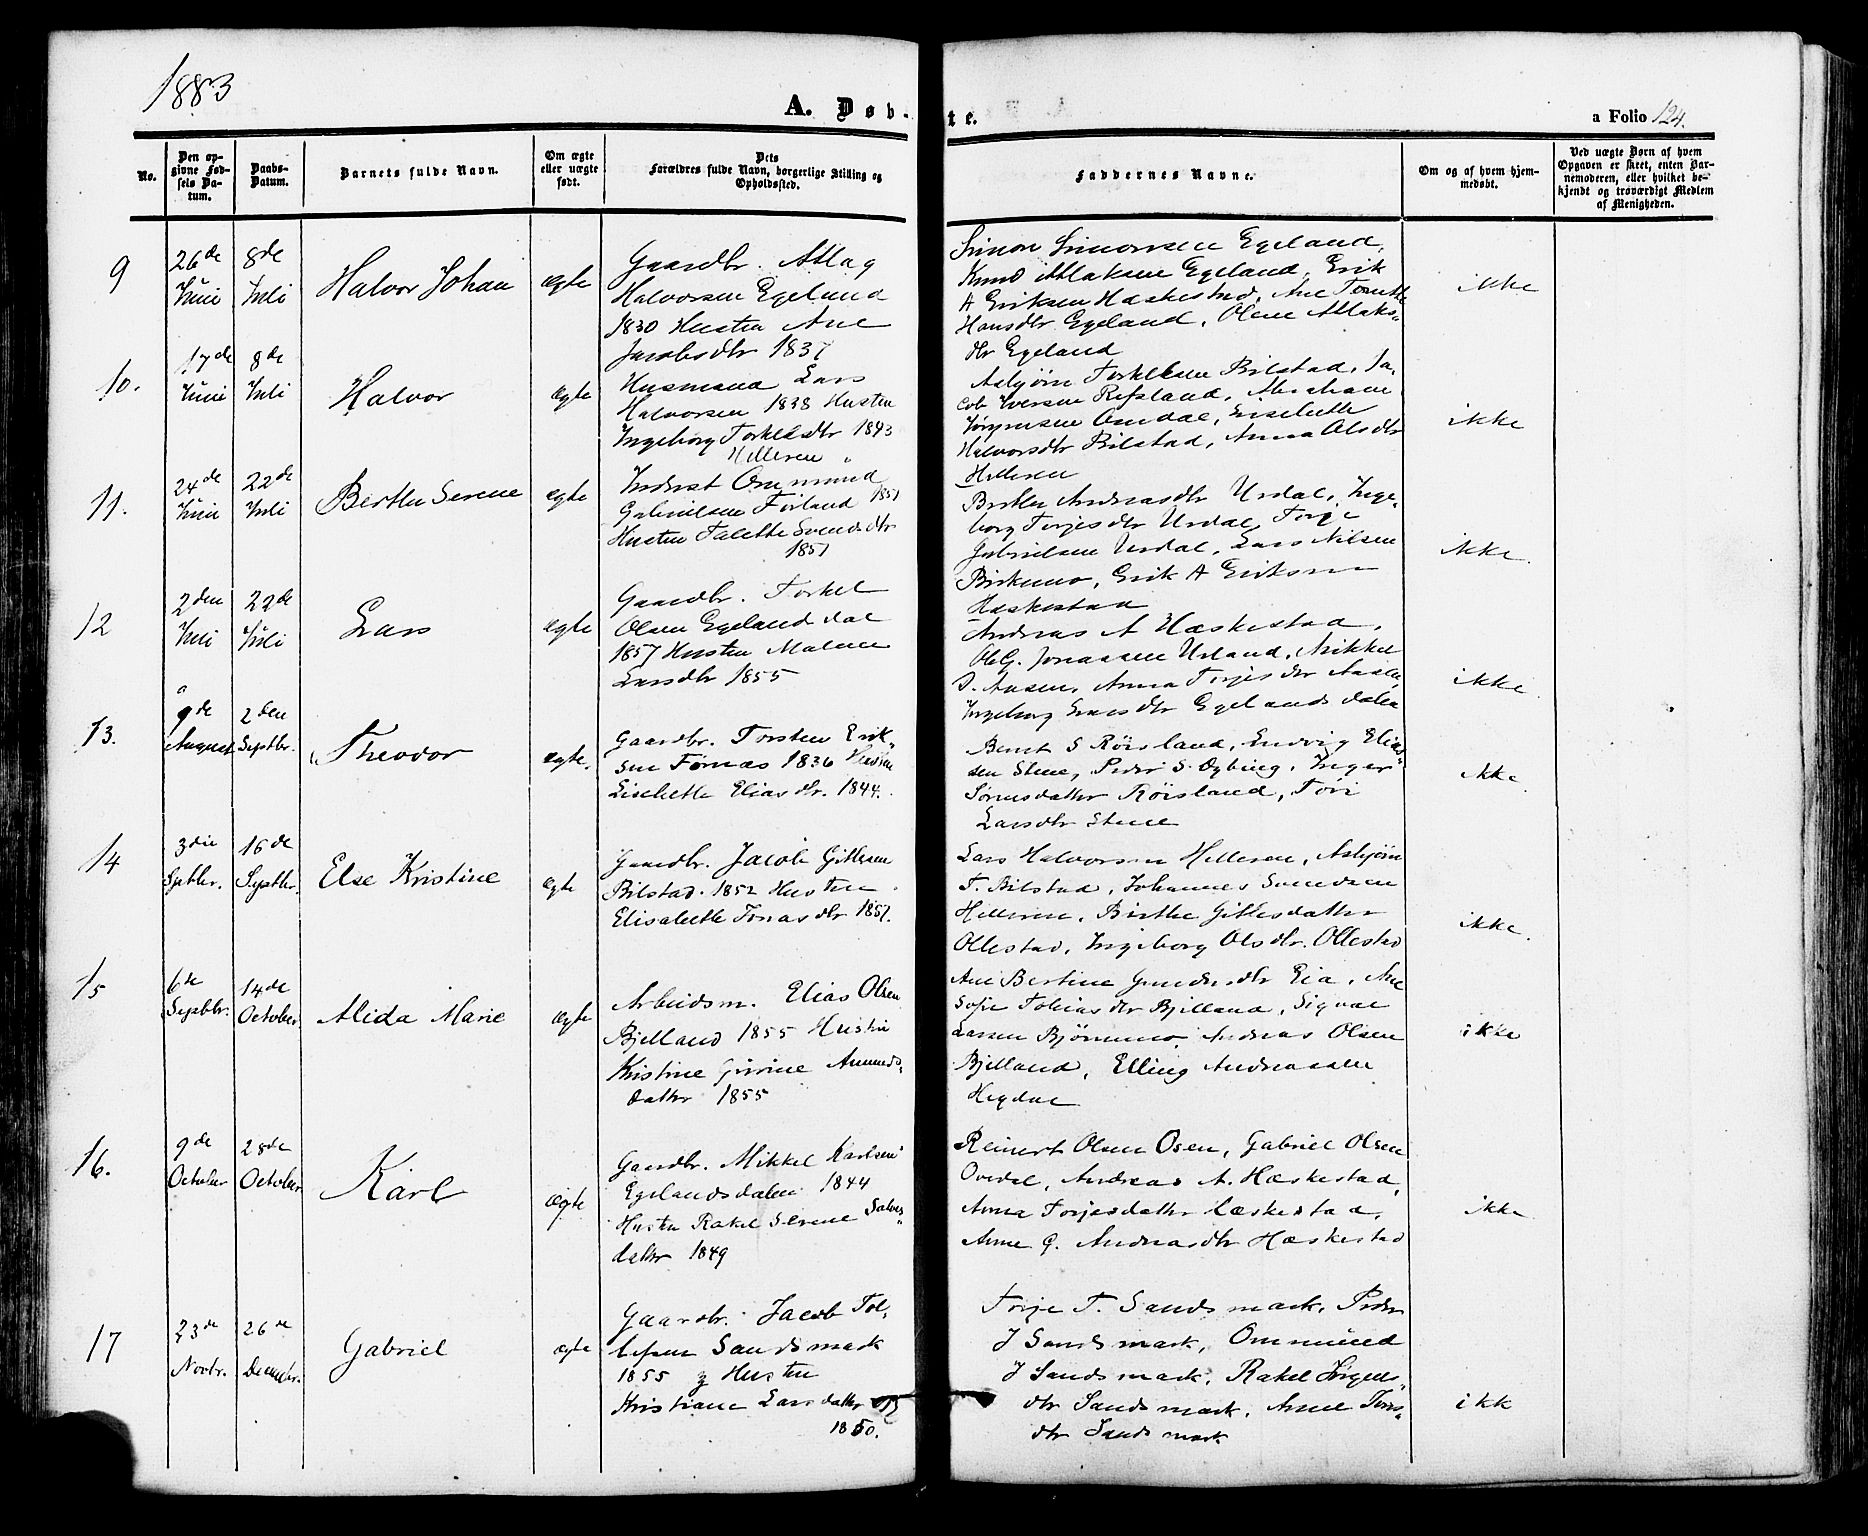 1883
A. Døb-
te.
a Folio 124.
No.
Den op-
givne Fød-
sels Da-
tum.
Daabs-
Datum.
Barnets fulde Navn.
Om ægte
eller uægte
født.
Dets
Forældres fulde Navn, borgerlige Stilling og
Opholdssted.
Faddernes Navne.
Om og af hvem hjem-
medøbt.
Ved uægte Børn af hvem
Opgaven er skeet, enten Bar-
nemoderen, eller hvilket be-
kjendt og troværdigt Medlem
af Menigheden.
9
26de
Juni
8de
Juli
Halvor Johan
ægte
Gaardbr. Atlag
Halvorsen Egeland
1830 Hustru Ane
Jacobsdtr 1837
Simon Simonsen Egeland,
Knud Atlaksen Egeland, Erik
A Eriksen Hæskestad, Ane Tomine
Hansdtr Egeland, Olene Atlaks-
dtr Egeland
ikke
10.
17de
Juni
8de
Juli
Halvor
ægte
Husmand Lars
Halvorsen 1838 Hustru
Ingeborg Torkelsdtr 1843
Helleren
Asbjørn Torkelsen Bilstad, Ja-
cob Iversen Refsland, Abraham
Jørgensen Omdal, Lisebette
Halvorsdtr Bilstad, Anna Olsdtr
Helleren
ikke
11.
24de
Juni
22de
Juli
Berthe Serene
ægte
Inderst Ommund
Gabrielsen Førland 1851
Hustru Talette Svendsdtr
1851
Berthe Andreasdtr Urdal, Inge-
borg Torjesdtr Urdal, Torje
Gabrielsen Urdal, Lars Nilsen
Birkemo, Erik A Eriksen
Hæskestad
ikke
12
2den
Juli
22de
Juli
Lars
ægte
Gaardbr. Torkel
Olsen Egelanddal
1857 Hustru Malene
Larsdtr 1855
Andreas A Hæskestad,
Ole G. Jonassen Urland, Mikkel
Aasen, Anna Torjesdtr Aasen,
Ingeborg Larsdtr Egelandsdalen
ikke
13.
9de
August
2den
Septbr.
Theodor
ægte.
Gaardbr. Torsten Erik-
sen Tørnæs 1836 Hustru
Lisebette Eliasdtr. 1844.
Bernt S Røisland, Ludvig Elias-
sen Stene, Peder S. Øgbing, Inger
Sørensdatter Røisland, Tori
Larsdtr Stene
ikke
14
3die
Septbr.
16de
Septbr.
Else Kristine
ægte
Gaardbr. Jacob Gitlesen
Bilstad. 1852 Hustru
Elisabeth Tonasdtr 1857.
Lars Halvorsen Helleren, Asbjørn
T. Bilstad, Johannes Svendsen
Helleren, Birthe Gitlesdatter
Ollestad, Ingeborg Olsdtr. Ollestad
ikke.
15
6te
Septbr.
14de
October
Alida Marie
ægte
Arbeidsm. Elias Olsen
Bjelland 1855 Hustru
Kristine Gurine Amunds-
datter 1855
Ane Bertine Gundersdtr Eia, Ane
Sofie Tobiasdtr Bjelland, Sigvae
Larsen Bjønnmo, Andreas Olsen
Bjelland, Elling Andreassen
Hegdal
ikke
16.
9de
October
28de
October
Karl
ægte
Gaardbr. Mikkel Karlsen
Egelandsdalen 1844
Hustru Rakel Serene Salves-
datter 1849
Reinert Olsen Osen, Gabriel Olsen
Ovedal, Andreas A. Hæskestad,
Anna Torjesdatter Læskestad,
Anne G. Andreasdtr Hæskestad
ikke
17
23de
Novbr.
26de
Decembr.
Gabriel
ægte
Gaardbr. Jacob Tol-
lefsen Sandsmark
1855 Hustru
Kristiane Larsdatter
1850.
Torje T. Sandsmark, Peder
J Sandsmark, Ommund
J Sandsmark, Rakel Jørgens-
dtr Sandsmark, Anne Tores-
dtr Sandsmark
ikk